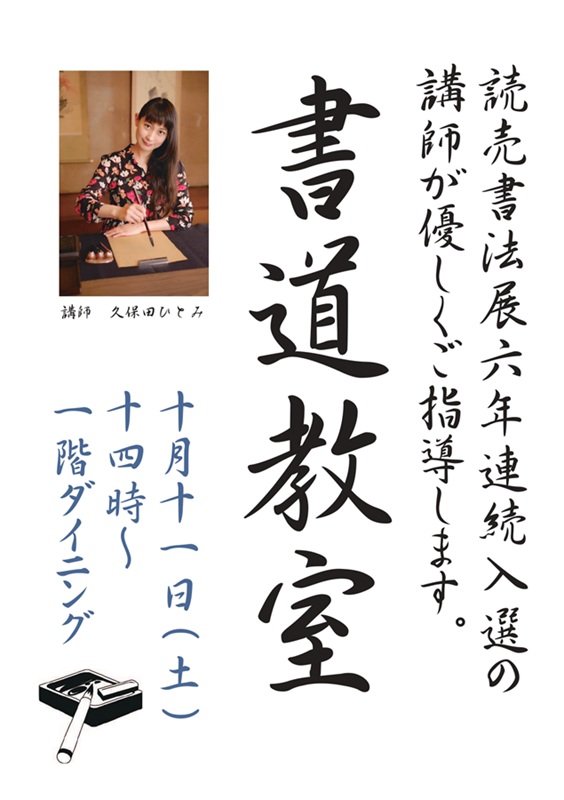 読売書法展六年連続入選の
講師が優しくご指導します。
書道教室
講師 久保田ひとみ
十月十一日(土)
十四時~
一階ダイニング